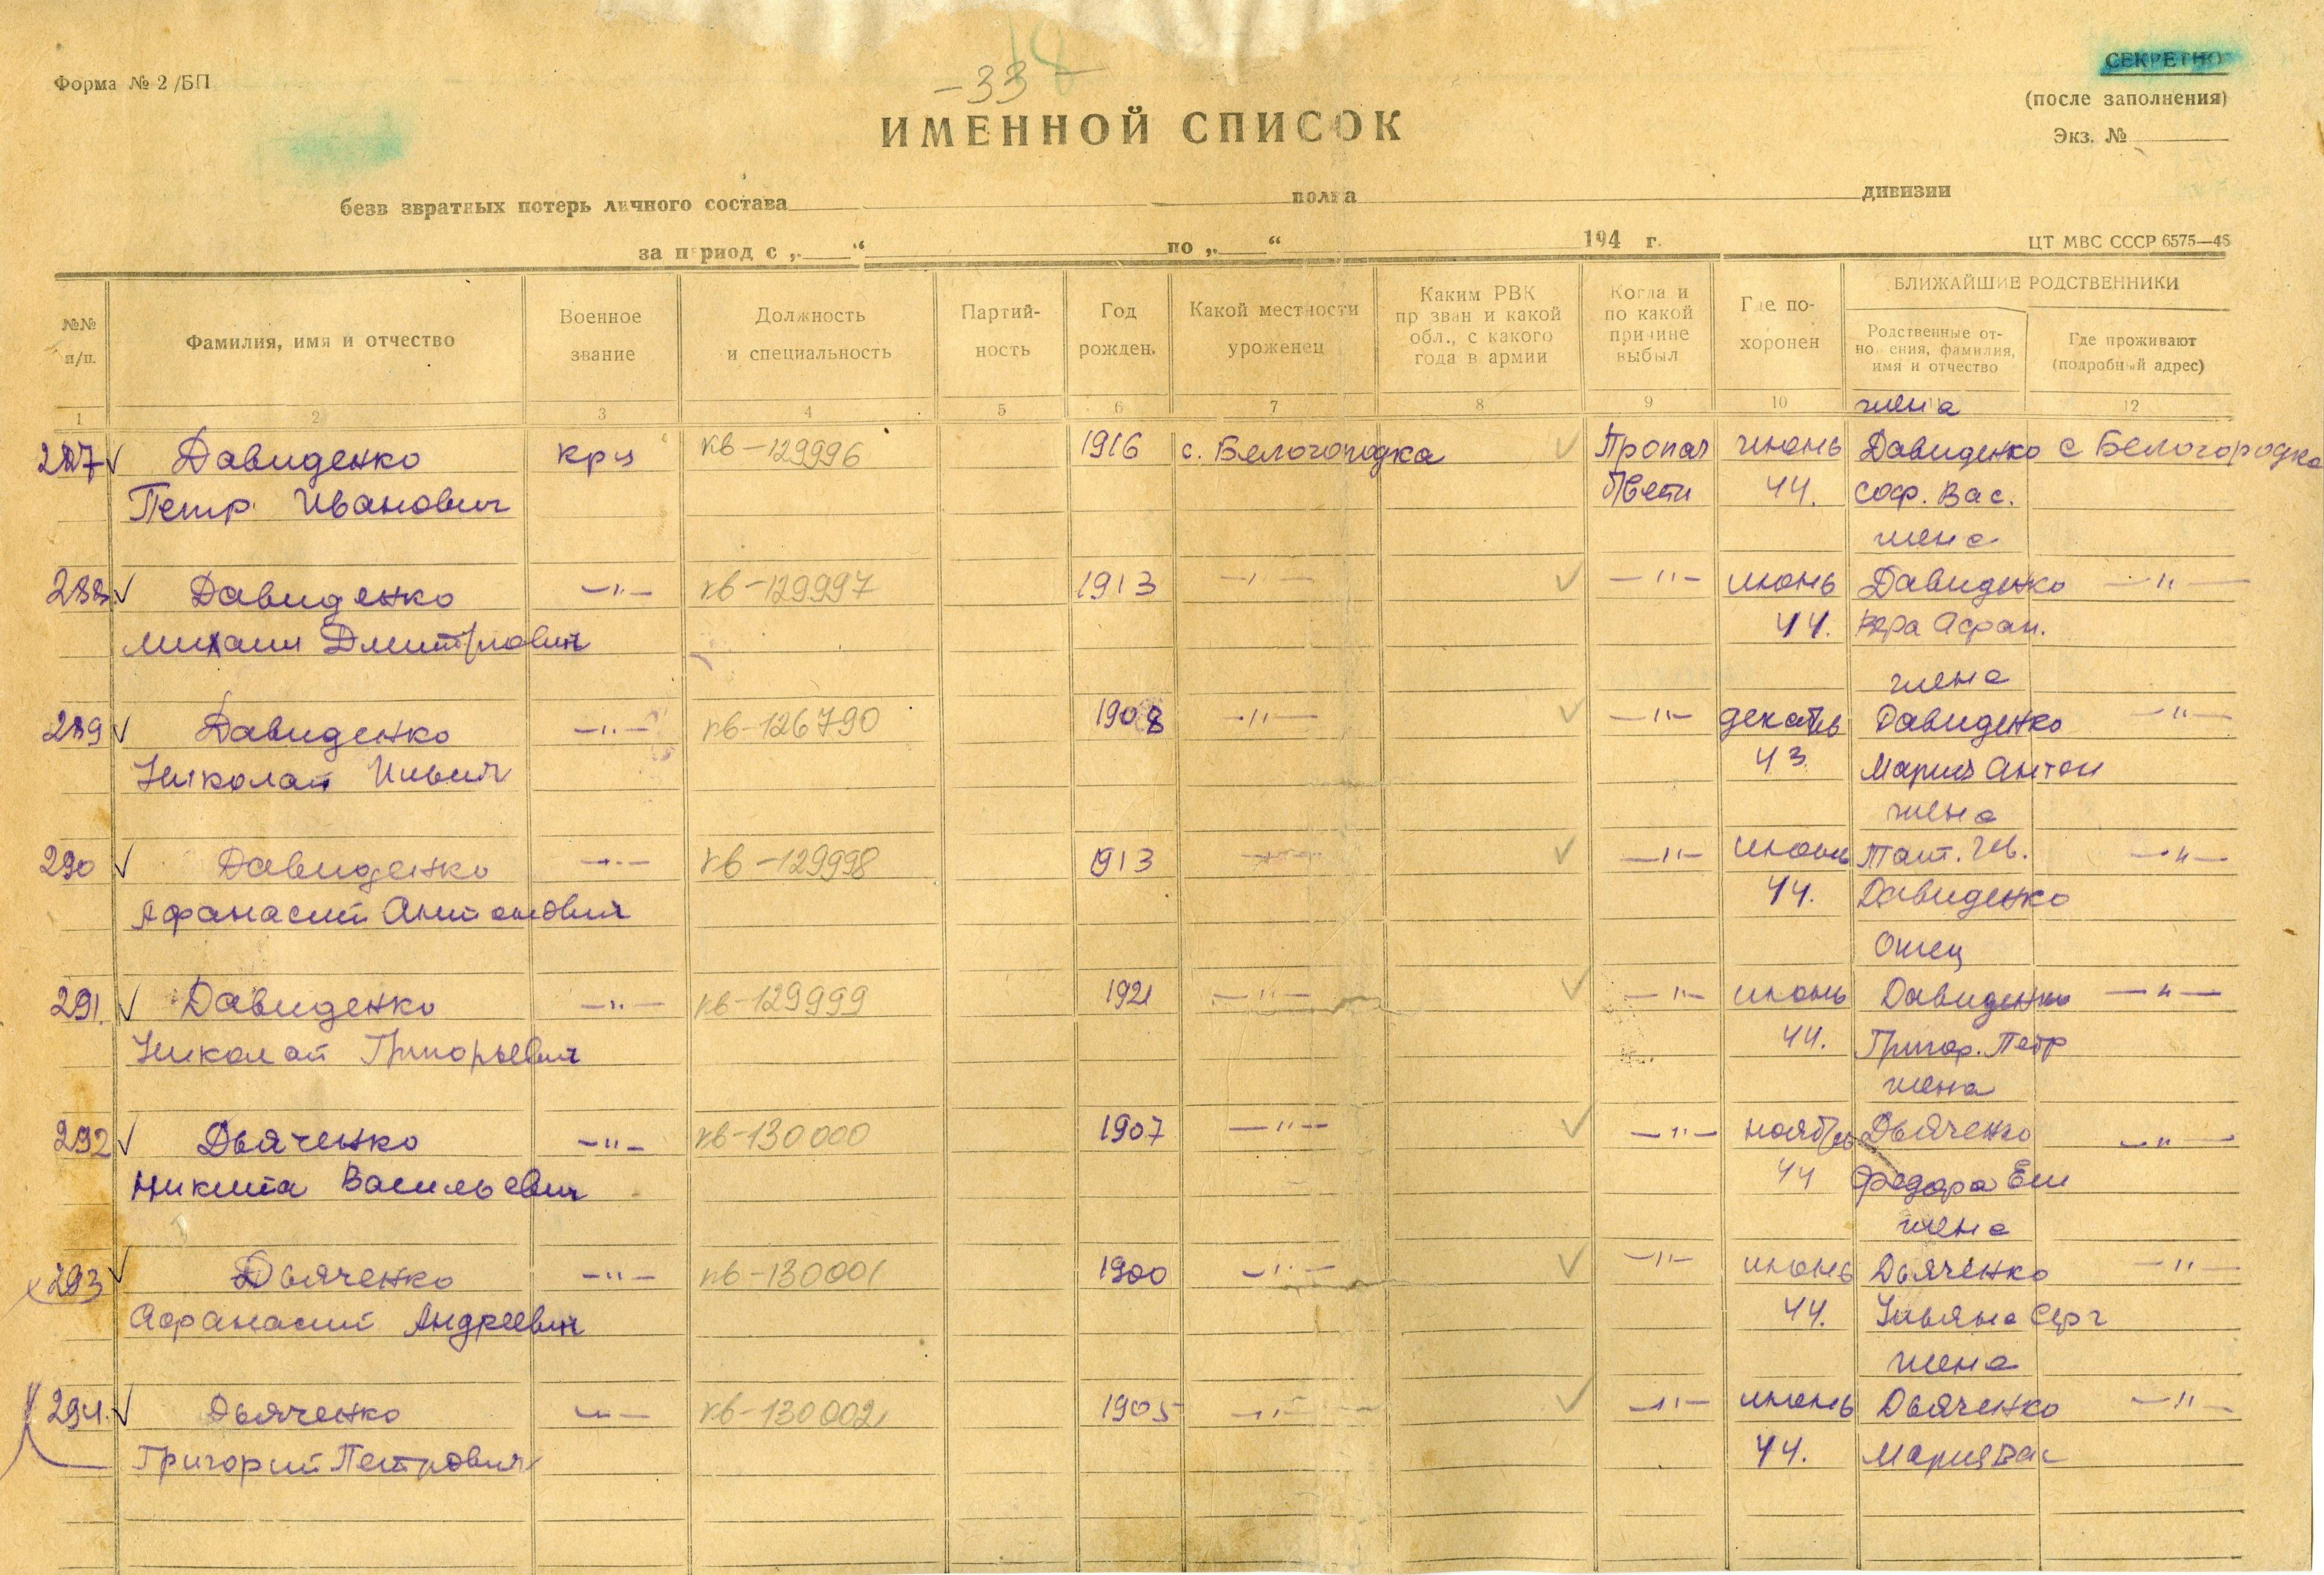 Форма № 2/БП
-33-
18
СЕКРЕТНО
(после заполнения)
Экз. №
ИМЕННОЙ СПИСОК
безв звратных потерь личного состава полка дивизии
за период с „ “ по „ “ 194 г.
ЦТ МВС СССР 6575—46
№№ п/п.
Фамилия, имя и отчество
Военное звание
Должность и специальность
Партийность
Год рожден.
Какой местности уроженец
Каким РВК призван и какой обл., с какого года в армии
Когда и по какой причине выбыл
Где похоронен
БЛИЖАЙШИЕ РОДСТВЕННИКИ
Родственные отношения, фамилия, имя и отчество
Где проживают (подробный адрес)
1 2 3 4 5 6 7 8 9 10 12
жена
287 ✓ Давиденко крц кв-129996 1916 с. Белогородка ✓ Пропал июнь Давиденко с Белогородка
Петр Иванович б/вести 44. Соф. Вас.
жена
288 ✓ Давиденко —"— кв-129997 1913 —"— ✓ —"— июнь Давиденко —"—
Михаил Дмитриович 44. Вера Афан.
жена
289 ✓ Давиденко —"— кв-126790 1908 —"— ✓ —"— декабрь Давиденко —"—
Николай Ильич 43 Мария Антон
жена
290 ✓ Давиденко —"— кв-129998 1913 —"— ✓ —"— июнь Тат. Ив. —"—
Афанасий Антонович 44. Давиденко
Отец
291. ✓ Давиденко —"— кв-129999 1921 —"— ✓ —"— июнь Давиденко —"—
Николай Григорьевич 44. Григор. Петр
жена
292 ✓ Дьяченко —"— кв-130000 1907 —"— ✓ —"— ноябрь Дьяченко —"—
Никита Васильевич 44 Федора Ем
жена
293 ✓ Дьяченко —"— кв-130001 1900 —"— ✓ —"— июнь Дьяченко —"—
Афанасий Андреевич 44. Ульяна Серг
жена
294. ✓ Дьяченко —"— кв-130002 1905 —"— ✓ —"— июнь Дьяченко —"—
Григорий Петрович 44. Мария Вас